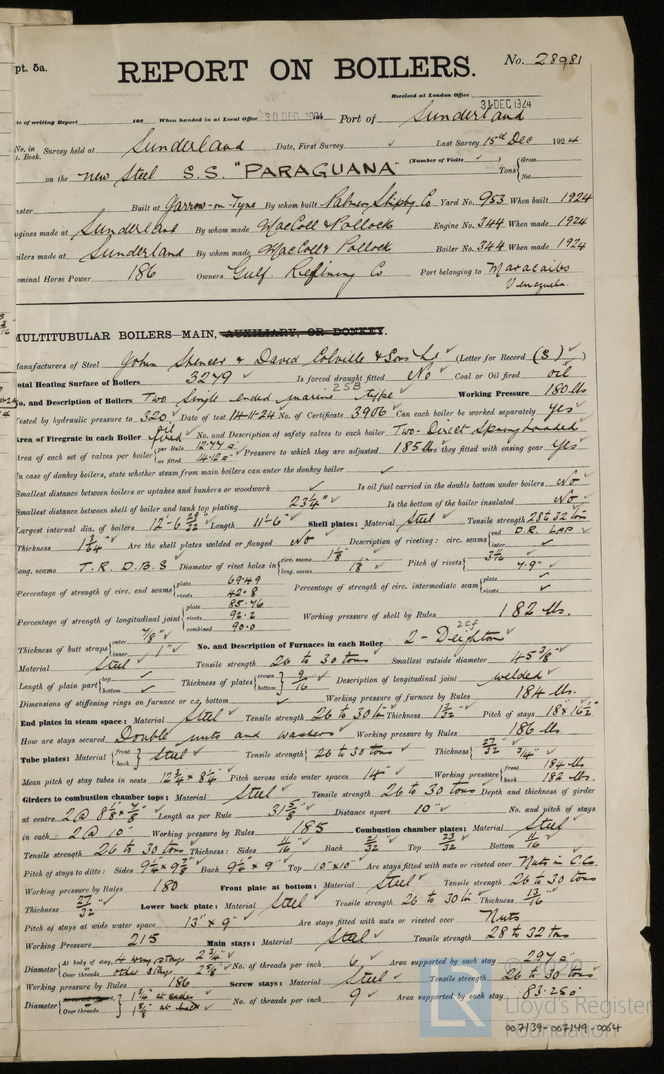 pt. 5a.
REPORT ON BOILERS.
No. 28981
Received at London Office 31 DEC 1924
te of writing Report 192 When handed in at Local Office 30 DEC 1924 Port of Sunderland
No. in Survey held at Sunderland Date, First Survey ✓ Last Survey 15th Dec 1924
. Book.
(Number of Visits ✓ )
on the new Steel S.S. "PARAGUANA" Tons { Gross Net
ster Built at Jarrow-on-Tyne By whom built Palmers Shipbg. Co Yard No. 953 When built 1924
ngines made at Sunderland By whom made MacColl & Pollock Engine No. 344 When made 1924
oilers made at Sunderland By whom made MacColl & Pollock Boiler No. 344 When made 1924
ominal Horse Power 186 Owners Gulf Refining Co Port belonging to Maracaibo
Venezuela.
MULTITUBULAR BOILERS—MAIN, AUXILIARY, OR DONKEY.
anufacturers of Steel John Spencer & David Colville & Sons Ld (Letter for Record (S) ✓ )
otal Heating Surface of Boilers 3279 Is forced draught fitted No Coal or Oil fired oil
2SB
o. and Description of Boilers Two Single ended marine type Working Pressure 180 lbs
ested by hydraulic pressure to 320 Date of test 14-11-24 No. of Certificate 3906 Can each boiler be worked separately yes
Area of Firegrate in each Boiler oil fired No. and Description of safety valves to each boiler Two - Direct Spring loaded
Area of each set of valves per boiler { per Rule 12.77 as fitted 14.12 Pressure to which they are adjusted 185 lbs Are they fitted with easing gear Yes
In case of donkey boilers, state whether steam from main boilers can enter the donkey boiler ✓
Smallest distance between boilers or uptakes and bunkers or woodwork ✓ Is oil fuel carried in the double bottom under boilers No
Smallest distance between shell of boiler and tank top plating 23¼" Is the bottom of the boiler insulated No
Largest internal dia. of boilers 12'-6 29/32 Length 11'-6" Shell plates: Material Steel Tensile strength 28 to 32 tons
Thickness 1 3/64" Are the shell plates welded or flanged No Description of riveting: circ. seams { end D.R. LAP inter. ✓
long. seams T.R. D.B.S Diameter of rivet holes in { circ. seams 1 1/8" long. seams 1 1/8" Pitch of rivets { 3 7/16 7.9"
Percentage of strength of circ. end seams { plate 69.49 rivets 42.8 Percentage of strength of circ. intermediate seam { plate ✓ rivets ✓
Percentage of strength of longitudinal joint { plate 85.76 rivets 92.2 combined 90.0 Working pressure of shell by Rules 182 lbs.
Thickness of butt straps { outer 7/8" inner 1" No. and Description of Furnaces in each Boiler 2 - Deighton
2cf
Material Steel Tensile strength 26 to 30 tons Smallest outside diameter 45 3/8"
Length of plain part { top ✓ bottom ✓ Thickness of plates { crown bottom } 9/16 Description of longitudinal joint welded
Dimensions of stiffening rings on furnace or c.c. bottom ✓ Working pressure of furnace by Rules 184 lbs.
End plates in steam space: Material Steel Tensile strength 26 to 30 tns Thickness 1 1/32" Pitch of stays 18" x 16½"
How are stays secured Double nuts and washers Working pressure by Rules 186 lbs
Tube plates: Material { front back } Steel Tensile strength { 26 to 30 tons Thickness { 27/32 3/4"
Mean pitch of stay tubes in nests 12¾ x 8¼" Pitch across wide water spaces 14" Working pressure { front 184 lbs back 182 lbs.
Girders to combustion chamber tops: Material Steel Tensile strength 26 to 30 tons Depth and thickness of girder
at centre 2 @ 8½ x 7/8" Length as per Rule 31 5/8" Distance apart 10" No. and pitch of stays
in each 2 @ 10" Working pressure by Rules 185 Combustion chamber plates: Material Steel
Tensile strength 26 to 30 tons Thickness: Sides 11/16 Back 21/32 Top 23/32 Bottom 11/16
Pitch of stays to ditto: Sides 9¼ x 9 7/8 Back 9½ x 9" Top 10" x 10" Are stays fitted with nuts or riveted over Nuts in C.Cs.
Working pressure by Rules 180 Front plate at bottom: Material Steel Tensile strength 26 to 30 tons
Thickness 27/32 Lower back plate: Material Steel Tensile strength 26 to 30 tn Thickness 13/16
Pitch of stays at wide water space 13" x 9" Are stays fitted with nuts or riveted over Nuts
Working Pressure 215 Main stays: Material Steel Tensile strength 28 to 32 tns
Diameter { At body of stay, 4 wing stays 2¾" Over threads other stay 2 5/8" No. of threads per inch 6 Area supported by each stay 297
Working pressure by Rules 186 Screw stays: Material Steel Tensile strength 26 to 30 tons
Diameter { Over threads } 1¾" at sides 1 5/8" at back No. of threads per inch 9 Area supported by each stay 83.25
© 2020
LR
Lloyd's Register
Foundation
007139-007149-0064